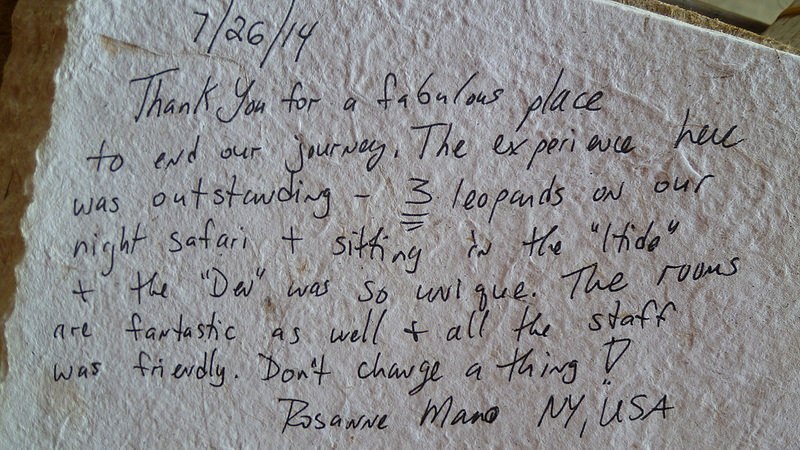 7/26/14
Thank You for a fabulous place
to end our journey. The experience here
was outstanding - 3 leopards on our
night safari + sitting in the "Hide"
+ the "Den" was so unique. The rooms
are fantastic as well + all the staff
was friendly. Don't change a thing!
Rosanne Mano NY, USA